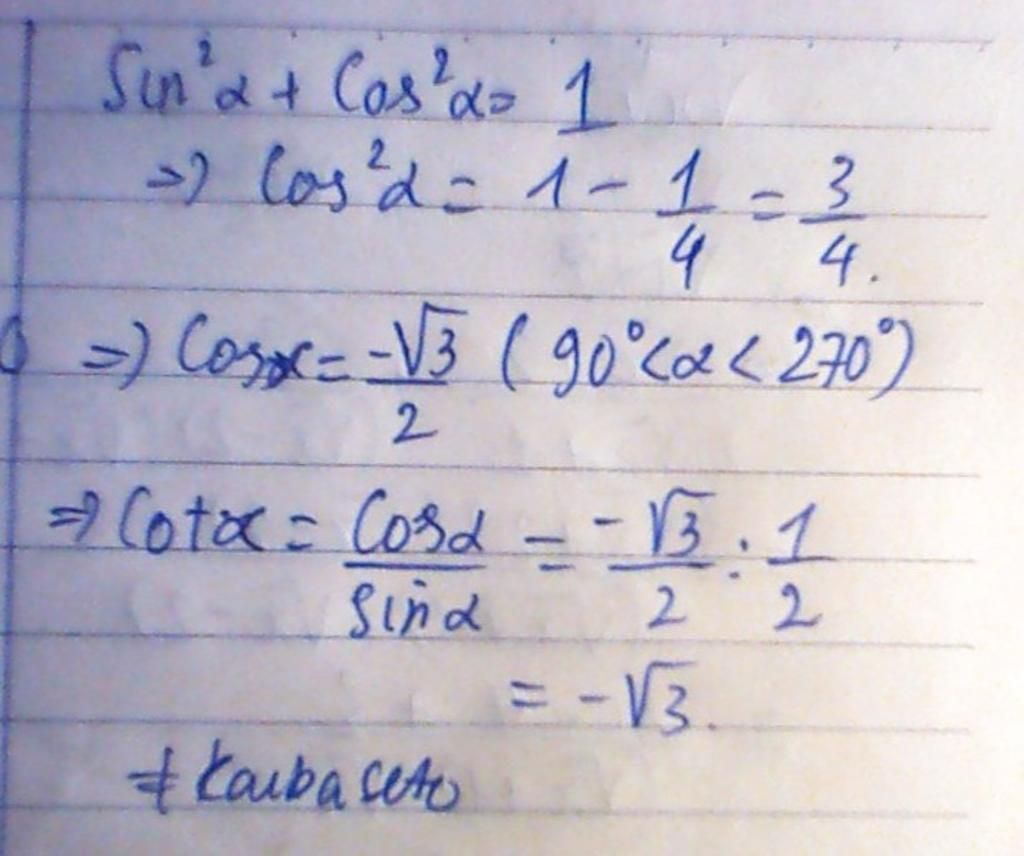 Sin²α + Cos²α = 1
=> Cos²α = 1 - 1/4 = 3/4.
=> Cosα = -√3/2 (90° < α < 270°)
=> Cotα = Cosα/sinα = -√3/2 : 1/2
= -√3.
# kaibaseto